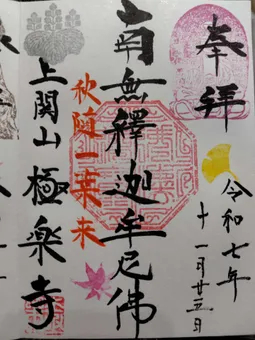 奉拝
令和七年
十一月廿五日
南無釋迦牟尼佛
秋随一葉来
上関山 極楽寺